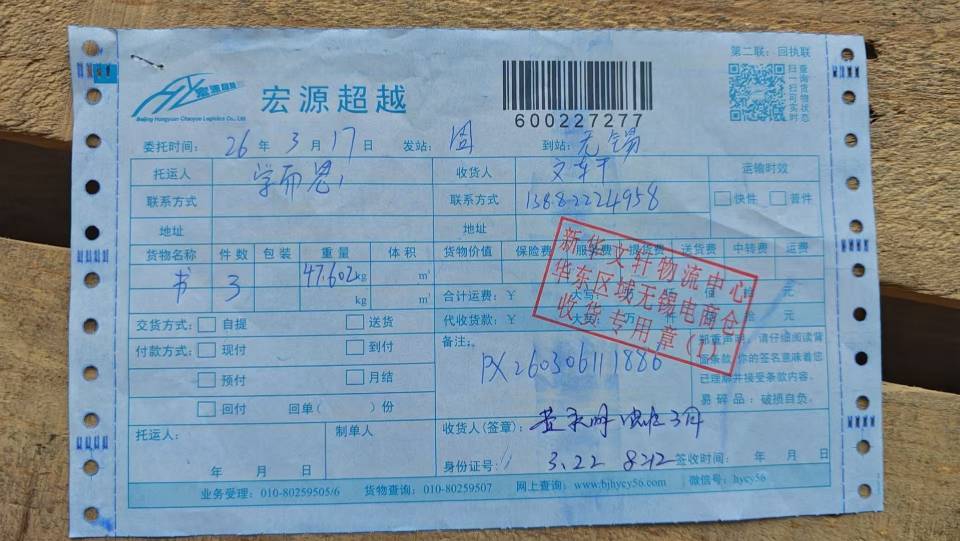 第二联：回执联
宏源超越
宏源超越
Beijing Hongyuan Chaoyue Logistics Co., Ltd.
600227277
扫一扫可查询货物实时状态
委托时间： 26 年 3 月 17 日 发站： 固 到站： 无锡
托运人 学而思 收货人 文轩 运输时效
联系方式 联系方式 快件 普件
地址 地址
货物名称 件数 包装 重量 体积 货物价值 保险费 服务费 提货费 送货费 中转费 运费
书 3 47.602kg m³
kg m³ 合计运费：￥ 大写： 元
交货方式： 自提 送货 代收货款：￥ 大写： 万 元
付款方式： 现付 到付 备注：
预付 月结 PX260306111886
回付 回单（ ）份
郑重声明：请仔细阅读背
面条款，你的签名意味着您
已理解并接受条款内容。
易碎品：破损自负。
新华文轩物流中心
华东区域无锡电商仓
收货专用章（1）
托运人： 制单人 收货人(签章)：
年 月 日 身份证号： 3.22 签收时间： 年 月 日
业务受理：010-80259505/6 货物查询：010-80259507 网上查询：www.bjhycy56.com 微信号：hycy56